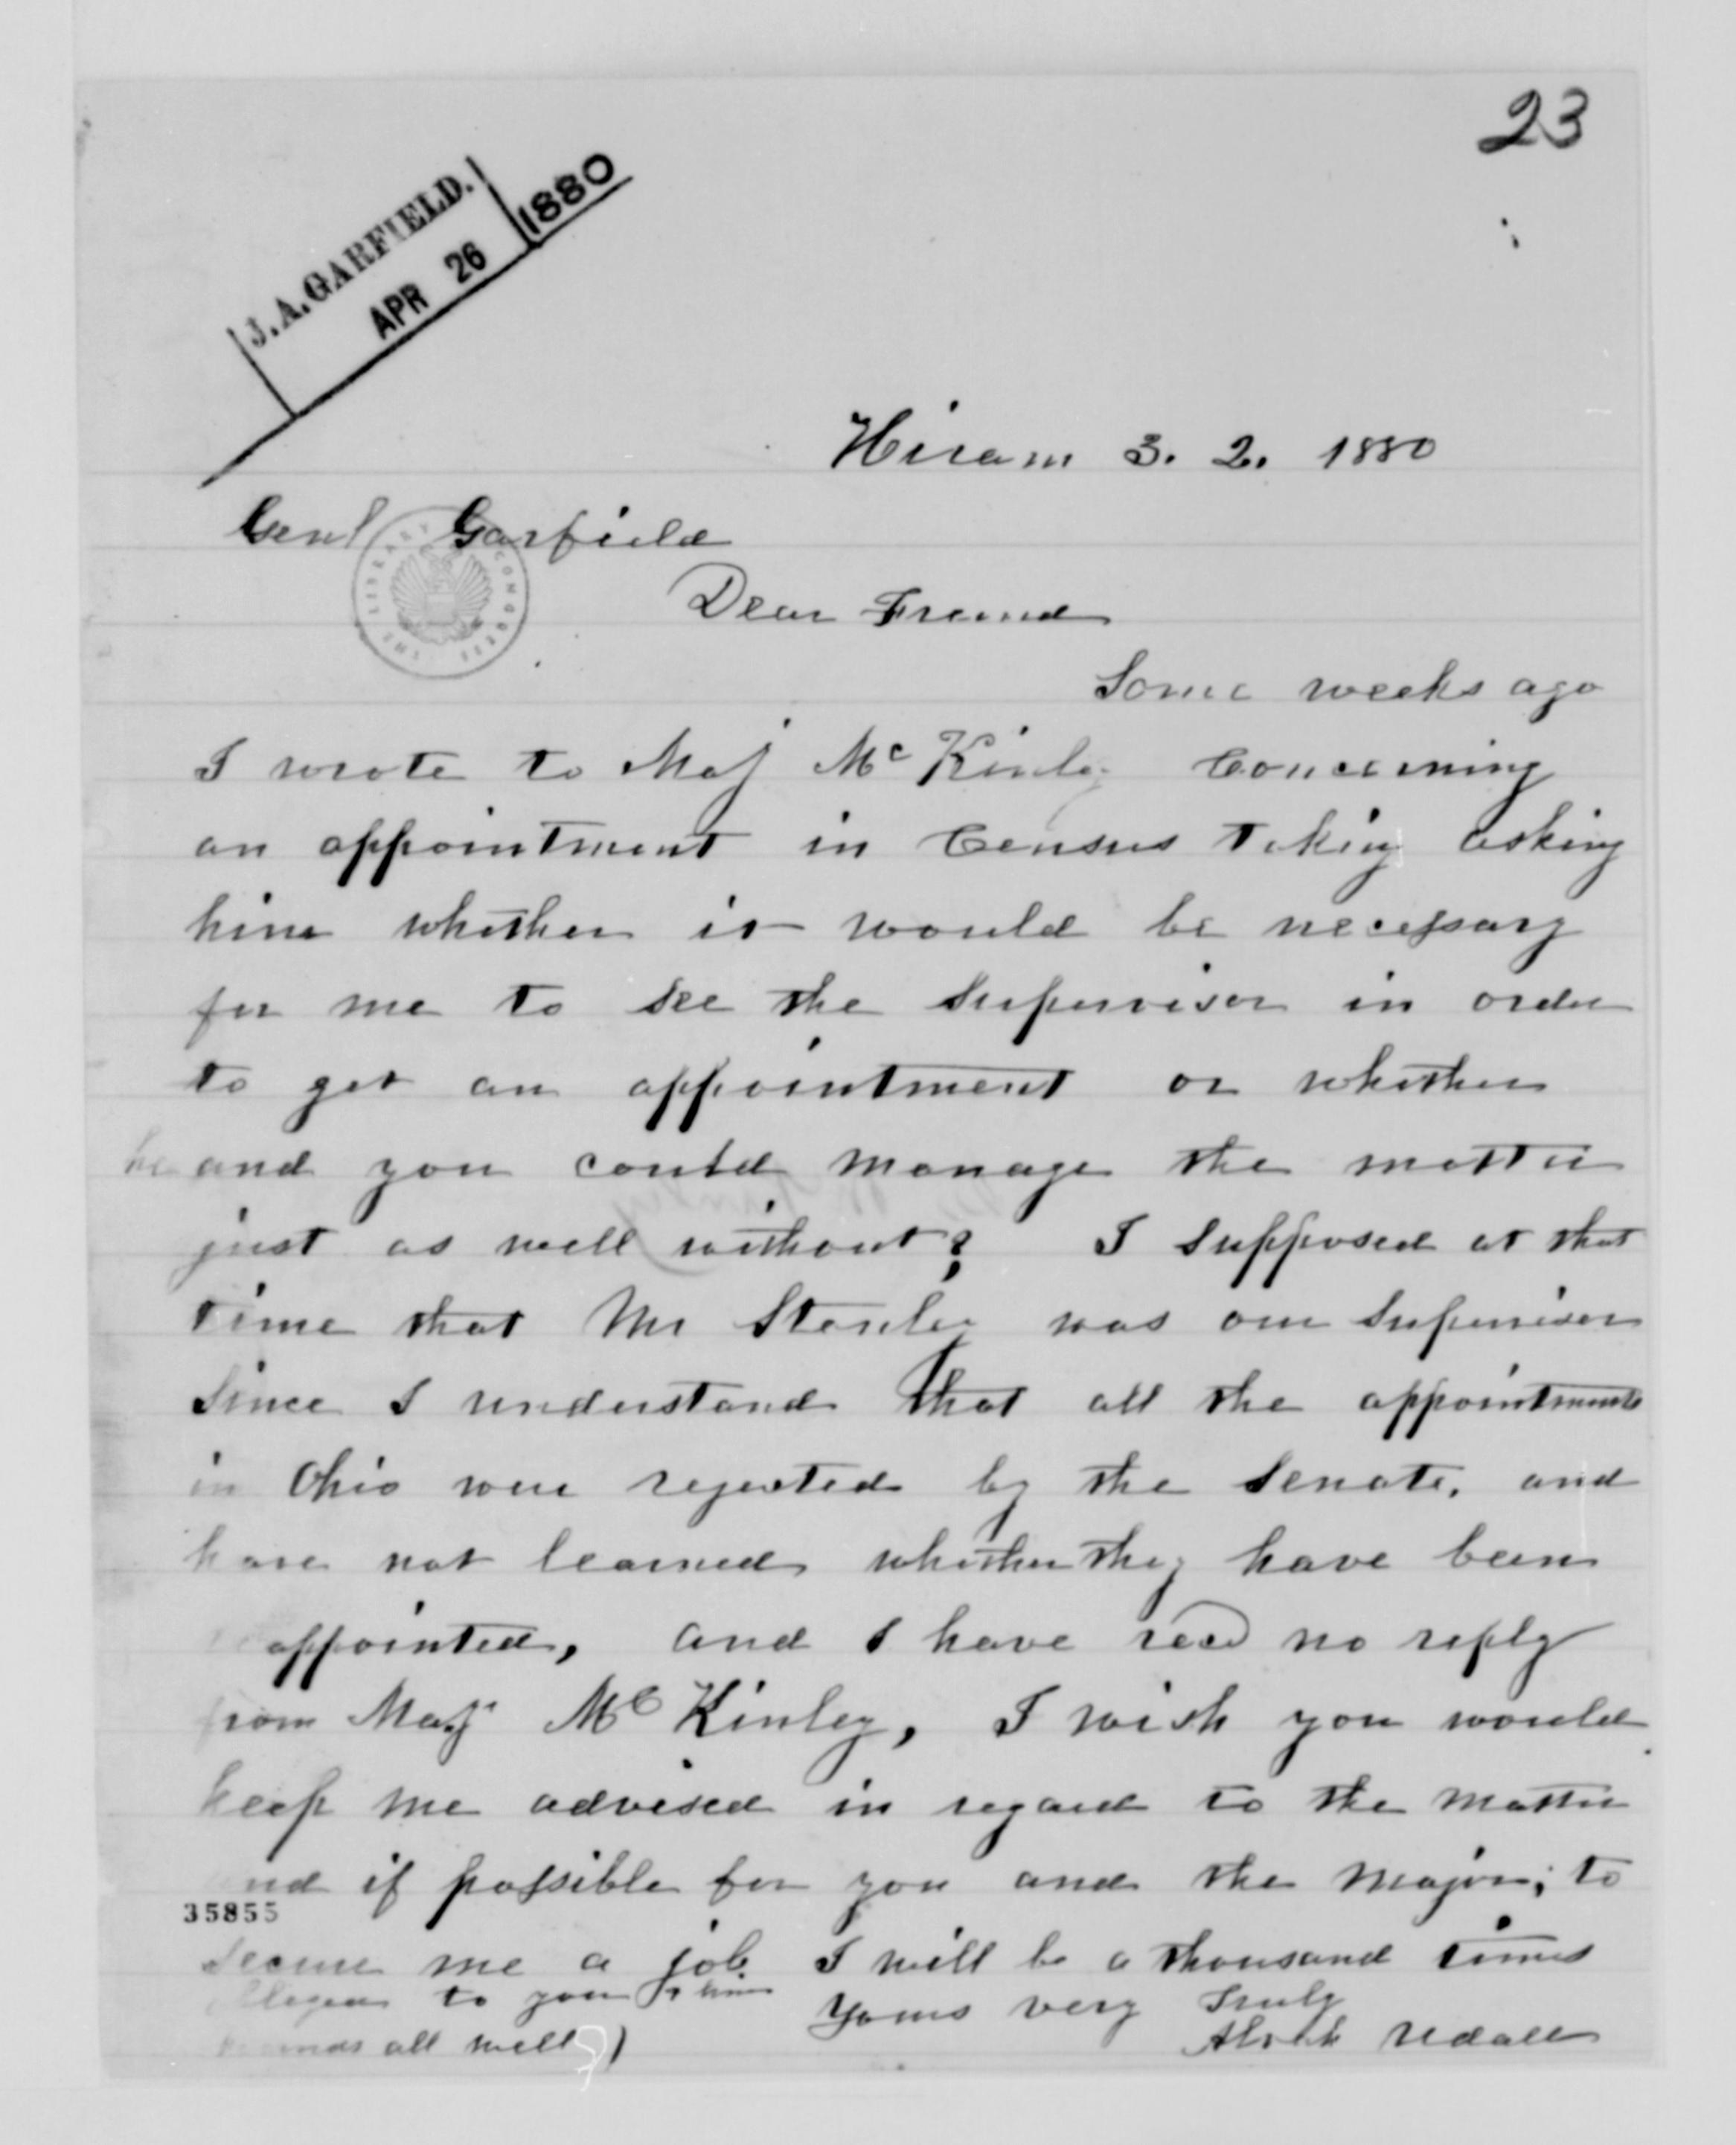 23
J. A. GARFIELD.
APR 26 1880
Hiram 3. 2. 1880
Genl Garfield
THE LIBRARY CONGRESS
Dear Friend
Some weeks ago
I wrote to Maj McKinley Concerning
an appointment in Census taking asking
him whether it would be necessary
for me to see the Supervisor in order
to get an appointment or whether
he and you could manage the matter
just as well without? I supposed at that
time that Mr Stanley was our Supervisor
Since I understand that all the appointments
in Ohio were rejected by the Senate. and
have not learned whether they have been
appointed, and I have recd no reply
from Maj McKinley, I wish you would
keep me advised in regard to the matter
and if possible for you and the Major; to
35855
secure me a job I will be a thousand times
to you & him
Yours very Truly
all well)
Udall